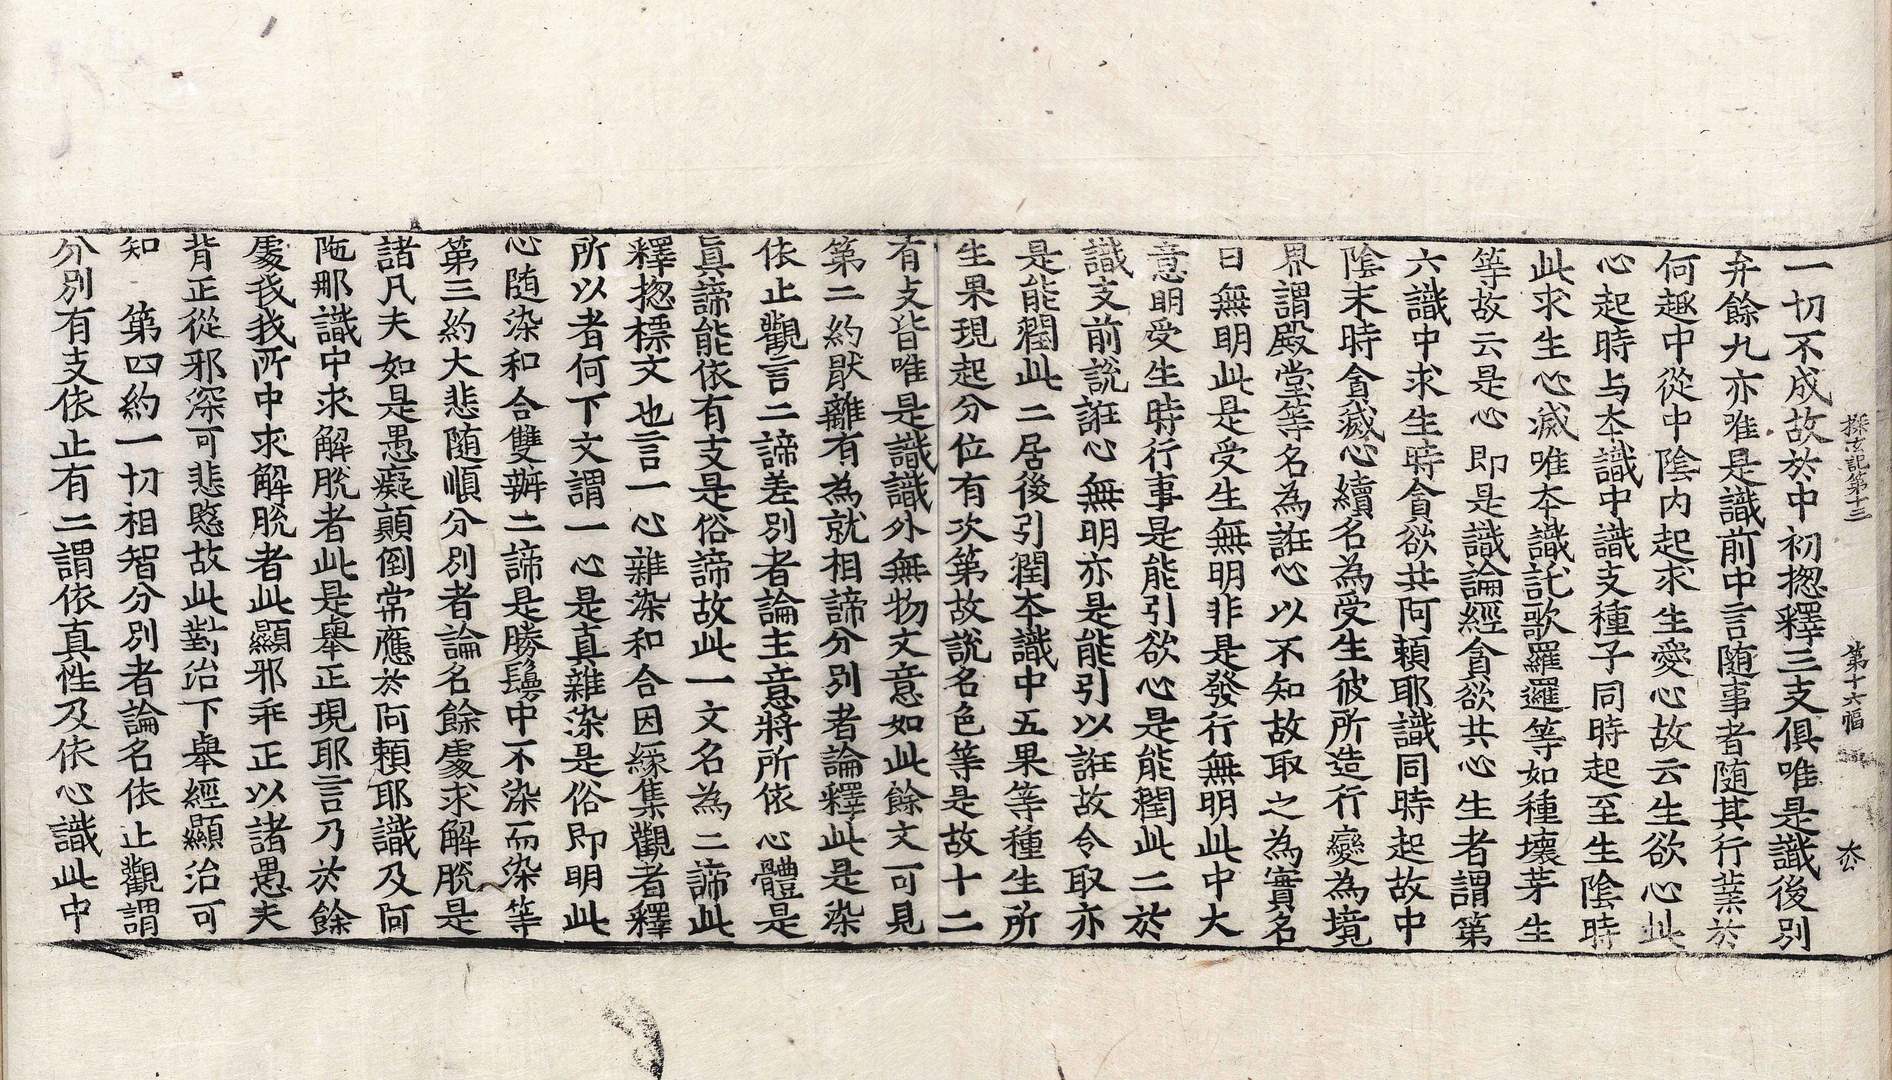 探玄記第十三　第十六幅　㭍
一切不成故於中初揔釋三支俱唯是識後別
弁餘九亦唯是識前中言随事者随其行業於
何趣中從中陰内起求生愛心故云生欲心此
心起時与本識中識支種子同時起至生陰時
此求生心滅唯本識託歌羅邏等如種壞芽生
等故云是心即是識論經貪欲共心生者謂第
六識中求生時貪欲共阿頼耶識同時起故中
陰末時貪滅心續名為受生彼所造行變為境
界謂殿堂等名為誑心以不知故取之為實名
曰無明此是受生無明非是發行無明此中大
意明受生時行事是能引欲心是能潤此二於
識支前說誑心無明亦是能引以誑故令取亦
是能潤此二居後引潤本識中五果等種生所
生果現起分位有次第故說名色等是故十二
有支皆唯是識識外無物文意如此餘文可見
第二約猒離有為就相諦分別者論釋此是染
依止觀言二諦差別者論主意將所依心體是
眞諦能依有支是俗諦故此一文名為二諦此
釋揔標文也言一心雜染和合因縁集觀者釋
所以者何下文謂一心是真雜染是俗即明此
心随染和合雙辦二諦是勝鬘中不染而染等
第三約大悲随順分別者論名餘處求解脫是
諸凡夫如是愚癡顛倒常應於阿頼耶識及阿
陁那識中求解脫者此是舉正現耶言乃於餘
處我我所中求解脫者此顯邪乖正以諸愚夫
背正從邪深可悲愍故此對治下舉經顯治可
知　第四約一切相智分別者論名依止觀謂
分別有支依止有二謂依真性及依心識此中